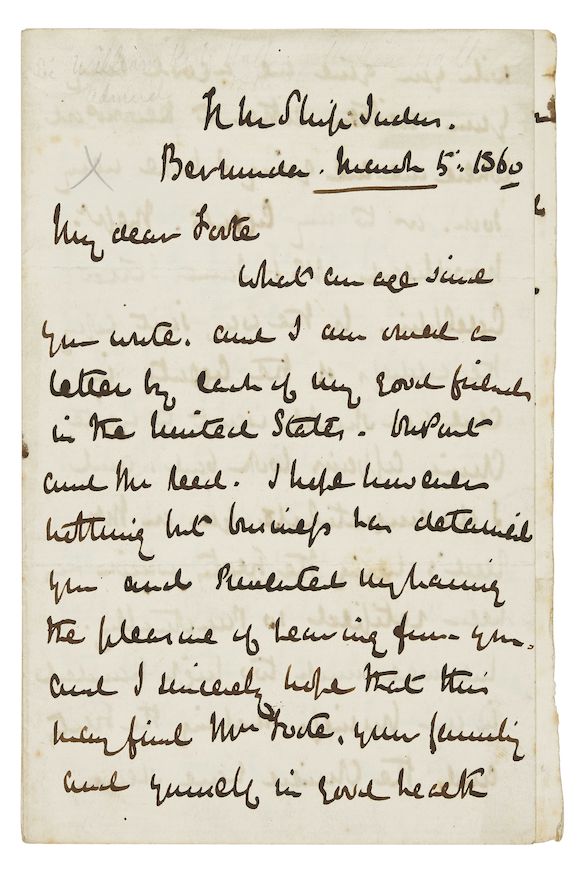 H M Ship Indus.
Bermuda. March 5. 1860
My dear Foote
What an age since
you wrote. and I am owed a
letter by each of my good friends
in the United States. DuPont
and Mr Reed. I hope however
nothing but business has detained
you and prevented my having
the pleasure of hearing from you.
and I sincerely hope that this
may find Mrs Foote, your family
and yourself in good health